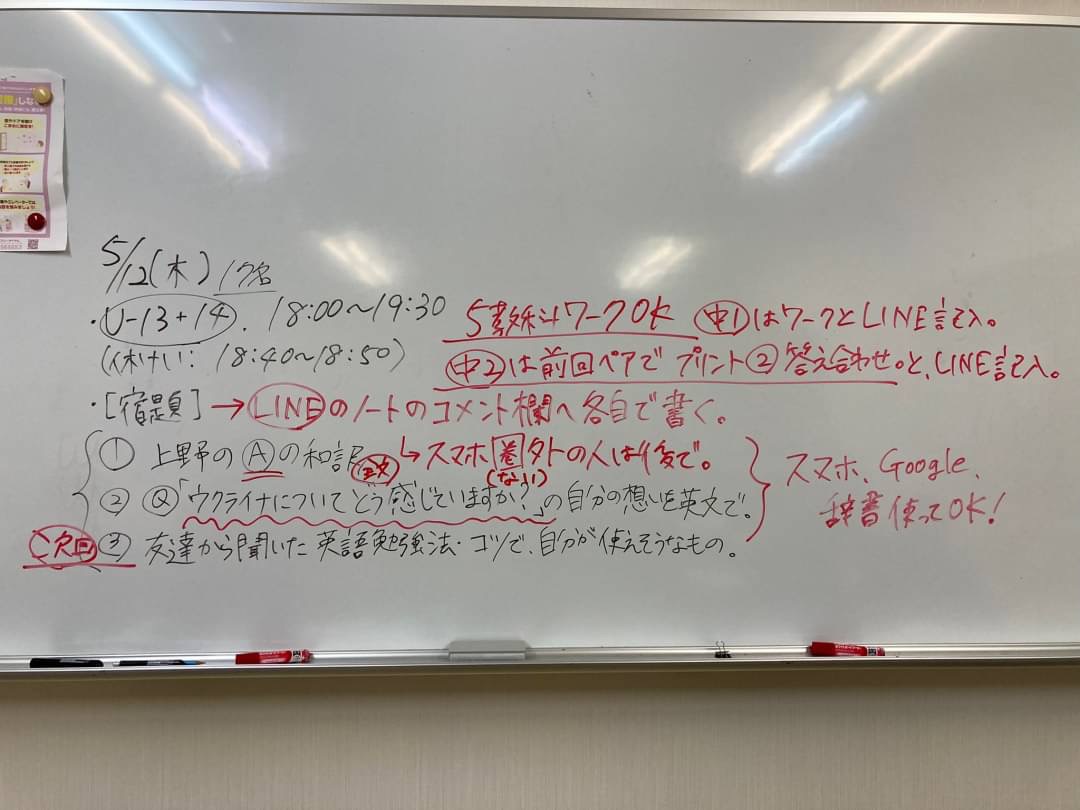 5/12(木) 17名
・U-13+14. 18:00〜19:30
5教科ワークOK 中1はワークとLINE記入。
(休けい: 18:40〜18:50)
中2は前回ペアでプリント②答え合わせ。と、LINE記入。
・[宿題]→LINEのノートのコメント欄へ各自で書く。
① 上野のAの和訳 全文
↳スマホ圏外の人は後で。
(ない)
② Q「ウクライナについてどう感じていますか?」の自分の想いを英文で。
スマホ、Google、
辞書使ってOK!
次回 ③ 友達から聞いた英語勉強法・コツで、自分が使えそうなもの。